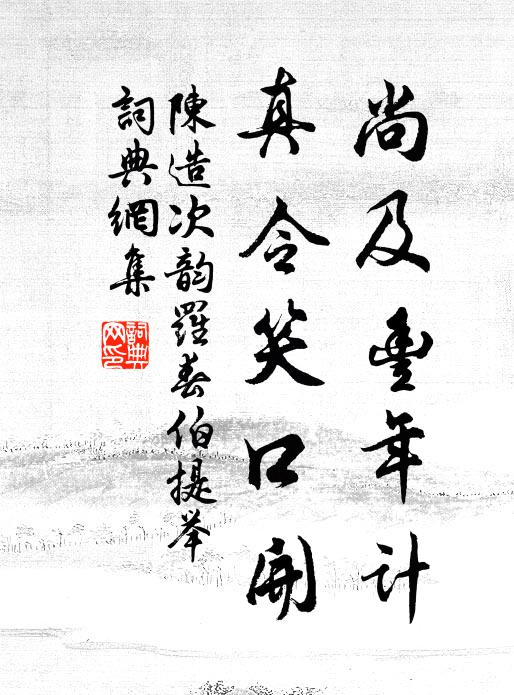 尚及豐年計
真令笑口開
陳造次韵羅春伯提举
詞典網集
詞典網印